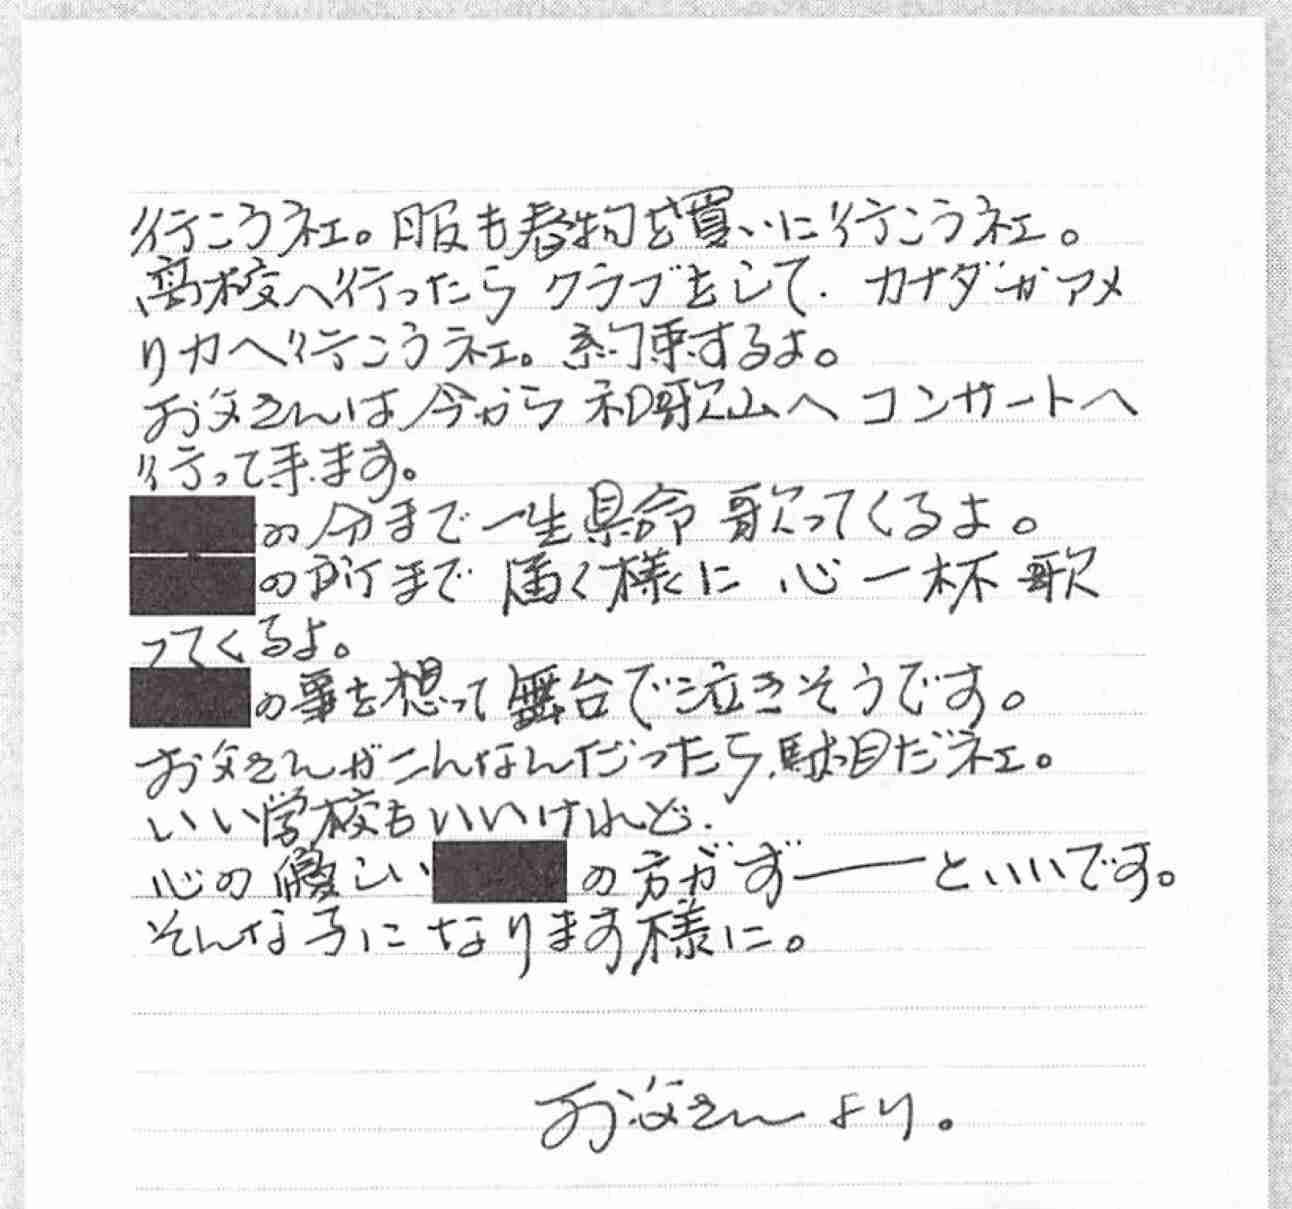 行こうネェ。服も春物を買いに行こうネェ。
高校へ行ったらクラブをして、カナダかアメ
リカへ行こうネェ。約束するよ。
お父さんは今から和歌山へコンサートへ
行って来ます。
の分まで一生県命歌ってくるよ。
の所まで届く様に心一杯歌
ってくるよ。
の事を想って舞台で泣きそうです。
お父さんがこんなんだったら、駄目だネェ。
いい学校もいいけれど、
心の優しい の方がずーーーといいです。
そんな子になります様に。
お父さんより。